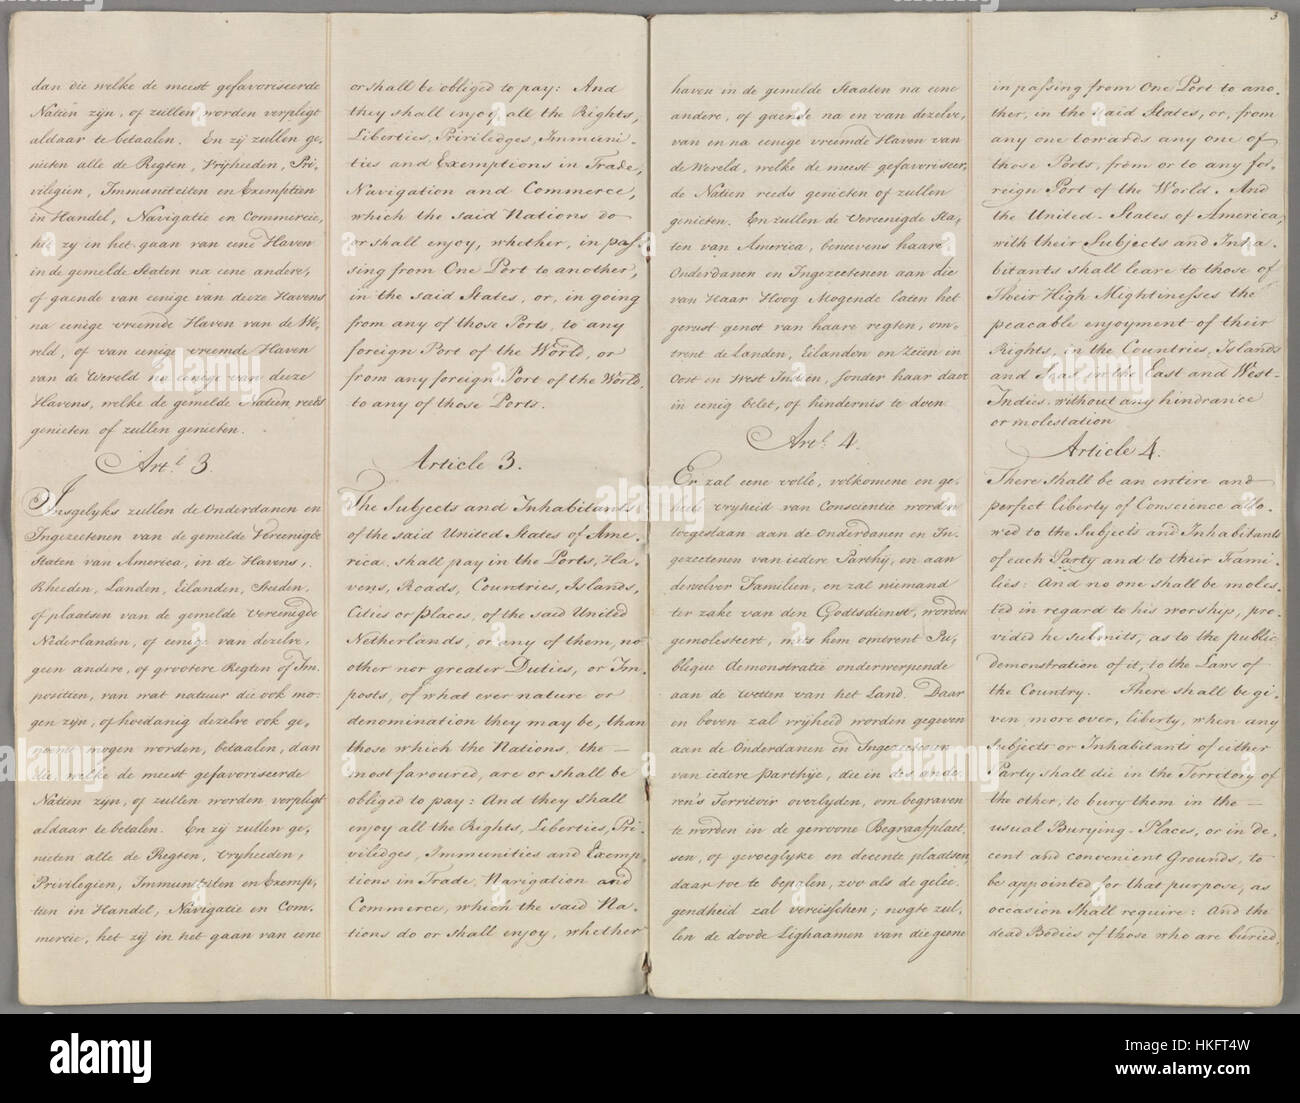 3
dan die welke de meest gefavoriseerde
Natien zijn, of zullen worden verpligt
aldaar te betaalen. En zij zullen ge,
nieten alle de Regten, Vrijheeden, Pri,
vilegien, Immuniteiten en Exemptien
in Handel, Navigatie en Commercie,
het zy in het gaan van eene Haven
in de gemelde Staten na eene andere,
of gaende van eenige van deeze Havens
na eenige vreemde Haven van de We,
reld, of van eenige vreemde Haven
van de Wereld na eenige van deeze
Havens, welke de gemelde Natien reeds
genieten of zullen genieten.
Art.l 3.
Insgelyks zullen de Onderdanen en
Ingezeetenen van de gemelde Vereenigde
Staten van America, in de Havens,
Rheeden, Landen, Eilanden, Steeden,
of plaatsen van de gemelde Vereenigde
Nederlanden, of eenige van dezelve,
geen andere, of grootere Regten of Im,
positien, van wat natuur die ook mo,
gen zijn, of hoedanig dezelve ook ge,
noemt mogen worden, betaalen, dan
die welke de meest gefavoriseerde
Natien zyn, of zullen worden verpligt
aldaar te betalen. En zij zullen ge,
nieten alle de Regten, Vryheeden,
Privilegien, Immuniteiten en Exemp,
tien in Handel, Navigatie en Com,
mercie, het zij in het gaan van eene
or shall be obliged to pay: And
they shall enjoy all the Rights,
Liberties, Priviledges, Immuni,
ties and Exemptions in Trade,
Navigation and Commerce,
which the said Nations do
or shall enjoy, whether, in pas,
sing from One Port to another,
in the said States, or, in going
from any of those Ports, to any
foreign Port of the World, or
from any foreign Port of the World,
to any of those Ports.
Article 3.
The Subjects and Inhabitants
of the said United States of Ame,
rica, shall pay in the Ports, Ha,
vens, Roads, Countries, Islands,
Cities or places, of the said United
Netherlands, or any of them, no
other nor greater Duties, or Im,
posts, of what ever nature or
denomination they may be, than
those which the Nations, the —
most favoured, are or shall be
obliged to pay: And they shall
enjoy all the Rights, Liberties, Pri,
viledges, Immunities and Exemp,
tions in Trade, Navigation and
Commerce, which the said Na,
tions do or shall enjoy, whether
haven in de gemelde Staaten na eene
andere, of gaende na en van dezelve,
van en na eenige vreemde Haven van
de Wereld, welke de meest gefavoriseer,
de Natien reeds genieten of zullen
genieten. En zullen de Vereenigde Sta,
ten van America, beneevens haare
Onderdanen en Ingezeetenen aan die
van Haar Hoog Mogende laten het
gerust genot van haare regten, om,
trent de Landen, Eilanden en Zeën in
Oost en West Indien, sonder haar daar
in eenig belet, of hindernis te doen
Art.l 4.
Er zal eene volle, volkomene en ge,
heele vryheid van Conscientie worden
toegestaan aan de Onderdanen en In,
gezeetenen van iedere Parthy, en aan
derzelver Familien, en zal niemand
ter zake van den Godtsdienst, worden
gemolesteert, mits hem omtrent Pu,
blique demonstratie onderwerpende
aan de wetten van het Land. Daar
en boven zal vrijheid worden gegeven
aan de Onderdanen en Ingezeetenen
van iedere Parthije, die in des ande,
ren's Territoir overlyden, om begraven
te worden in de gewoone Begraafplaat,
sen, of gevoeglyke en decente plaatsen,
daar toe te bepalen, zoo als de gelee,
gendheid zal vereisschen; nogte zul,
len de doode Lighaamen van die geene
in passing from One Port to ano,
ther, in the said States, or, from
any one towards any one of
those Ports, from or to any fo,
reign Port of the World. And
the United-States of America,
with their Subjects and Inha,
bitants shall leave to those of
Their High Mightinesses the
peacable enjoyment of their
Rights, in the Countries, Islands
and Seas, in the East and West-
Indies, without any hindrance
or molestation
Article 4.
There shall be an entire and
perfect liberty of Conscience allo,
wed to the Subjects and Inhabitants
of each Party and to their Fami,
lies: And no one shall be moles,
ted in regard to his worship, pro,
vided he submits, as to the public
demonstration of it, to the Laws of
the Country. There shall be gi,
ven, more over, liberty, when any
Subjects or Inhabitants of either
Party shall die in the Territory of
the other, to bury them in the —
usual Burying-Places, or in de,
cent and convenient Grounds, to
be appointed for that purpose, as
occasion shall require: And the
dead Bodies of those who are buried,
alamy
alamy stock photo
HKFT4W
www.alamy.com